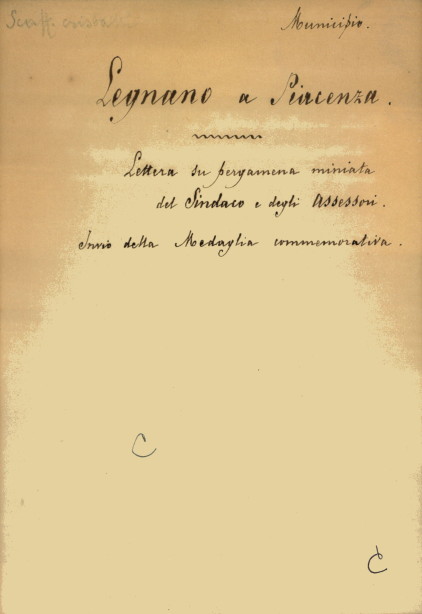 Municipio.
Legnano a Piacenza.
Lettera su pergamena miniata
del Sindaco e degli Assessori.
Invio della Medaglia commemorativa.
C
C